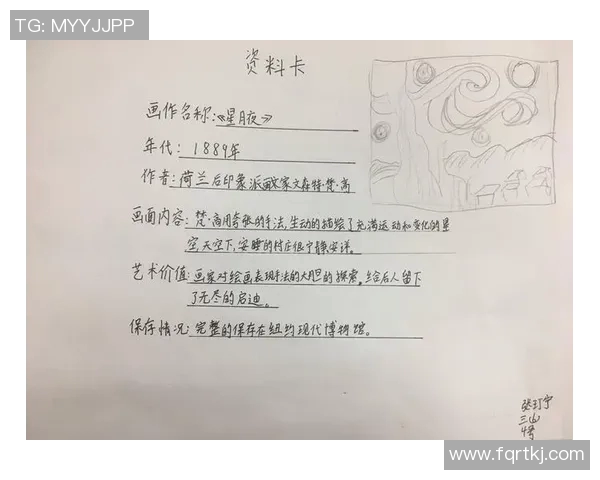 TG: MYYJJPP
资料卡
画作名称:《星月夜》
年代: 1889年
作者: 荷兰后印象派画家文森特·梵·高
画面内容: 梵·高用夸张的手法,生动的描绘了充满运动和变化的星
空,天空下,安睡的村庄很宁静安详。
艺术价值: 画家对绘画表现手法的大胆的探索。给后人留下
了无尽的启迪。
保存情况: 完整的保存在纽约现代博物馆。
三
4号
www.fqrtkj.com